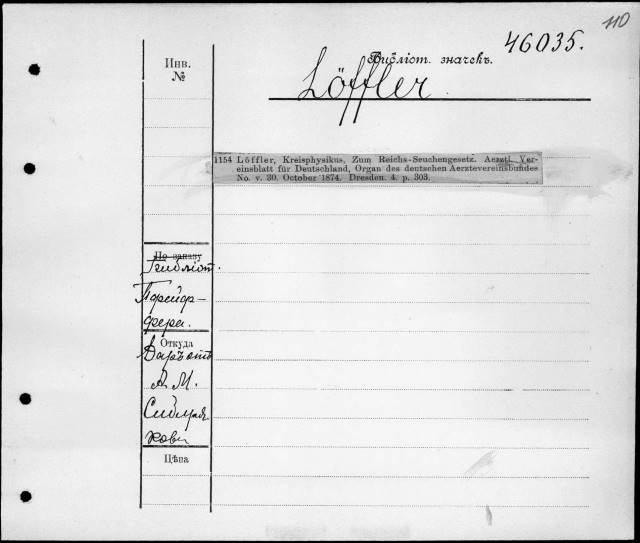 110
46035.
Инв.
№
Библіот. значекъ.
Löffler.
1154 Löffler, Kreisphysikus, Zum Reichs-Seuchengesetz. Aerztl. Ver-
einsblatt für Deutschland, Organ des deutschen Aerztevereinsbundes
No. v. 30. October 1874. Dresden. 4. p. 303.
По заказу
Библіот.
Откуда
А. М.
Цѣна